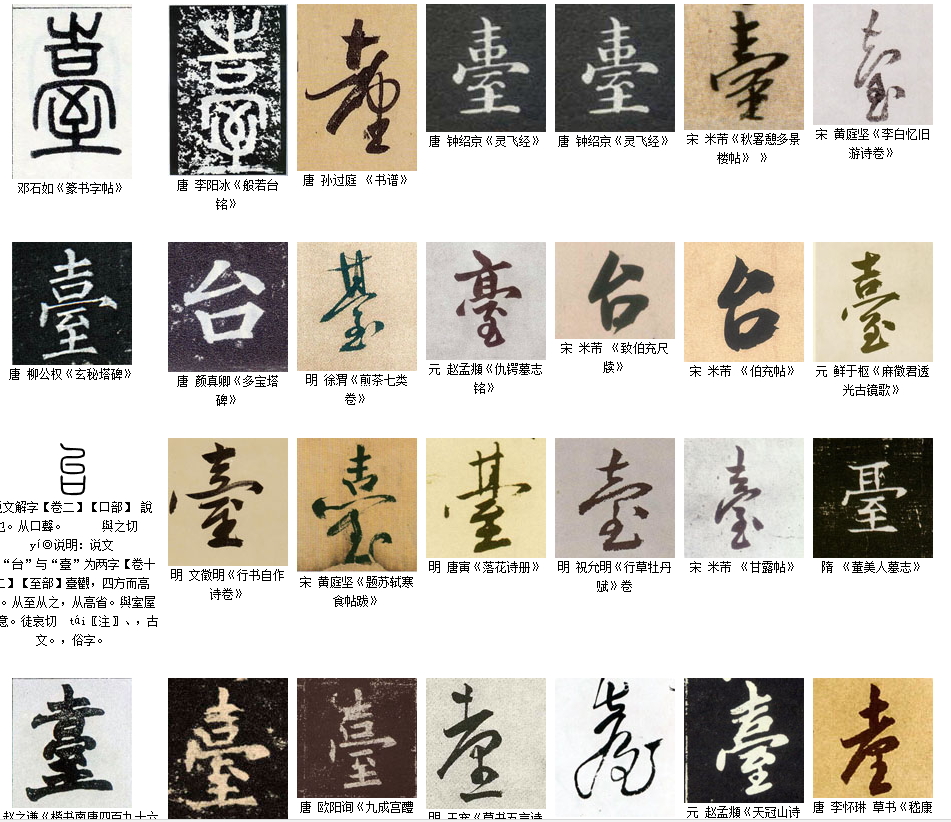 臺
臺
臺
臺
臺
臺
臺
邓石如《篆书字帖》
唐 李阳冰《般若台铭》
唐 孙过庭 《书谱》
唐 钟绍京《灵飞经》
唐 钟绍京《灵飞经》
宋 米芾《秋署憩多景楼帖》 》
宋 黄庭坚《李白忆旧游诗卷》
臺
台
臺
臺
台
台
臺
唐 柳公权《玄秘塔碑》
唐 颜真卿《多宝塔碑》
明 徐渭《煎茶七类卷》
元 赵孟頫《仇锷墓志铭》
宋 米芾 《致伯充尺牍》
宋 米芾 《伯充帖》
元 鲜于枢《麻徵君透光古镜歌》
台
臺
臺
臺
臺
臺
臺
文解字【卷二】【口部】 說
。从口㠯。 與之切
yí◎说明：说文
“台”与“臺”为两字【卷十
二】【至部】臺觀，四方而高
。从至从之，从高省。與室屋
意。徒哀切 tái〖注〗、，古
文。，俗字。
明 文徵明《行书自作诗卷》
宋 黄庭坚《题苏轼寒食帖跋》
明 唐寅《落花诗册》
明 祝允明《行草牡丹赋》卷
宋 米芾 《甘露帖》
隋 《董美人墓志》
臺
臺
臺
臺
臺
臺
臺
赵之谦《楷书南唐四百九十六
唐 欧阳询《九成宫醴
明 王宠《草书五言诗
元 赵孟頫《天冠山诗
唐 李怀琳 草书《嵇康